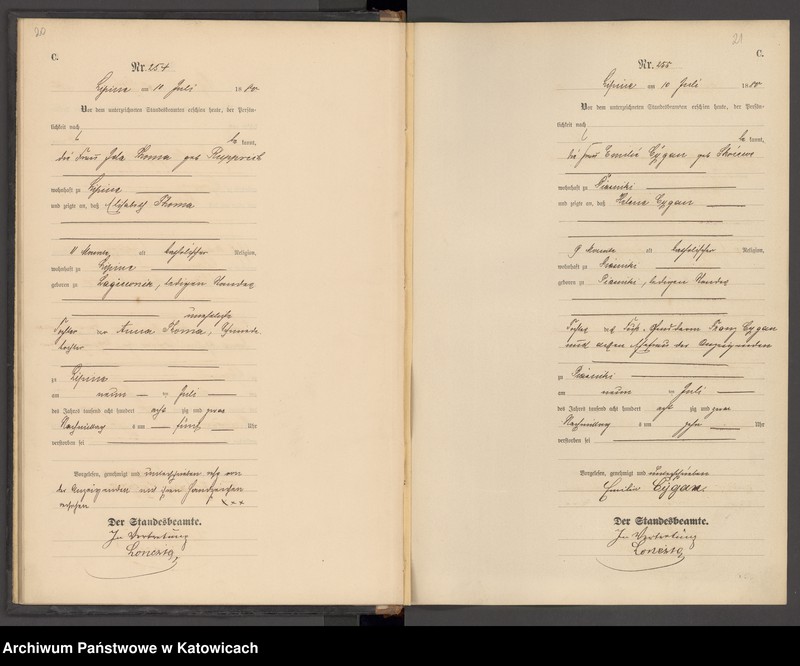 20
C.
Nr. 254
Lipine am 10 Juli 1880
Vor dem unterzeichneten Standesbeamten erschien heute, der Persön-
lichkeit nach
be kannt,
die Frau Thoma geb
wohnhaft zu Lipine
und zeigte an, daß Elisabeth Thoma
11 Monate alt katholischer Religion,
wohnhaft zu Lipine
geboren zu Lagiewnik, ledigen Standes
uneheliche
Tochter der Anna Thoma,
tochter
zu Lipine
am neun ten Juli
des Jahres tausend acht hundert acht zig und
Nachmittag s um fünf Uhr
verstorben sei
Vorgelesen, genehmigt und unterschrieben von
der Anzeigenden mit ihrem Handzeichen
versehen
xxx
Der Standesbeamte.
In Vertretung
21
C.
Nr. 255
Lipine am 10 Juli 1880
Vor dem unterzeichneten Standesbeamten erschien heute, der Persön-
lichkeit nach
be kannt,
die Frau Emilie Cygan geb
wohnhaft zu Piasniki
und zeigte an, daß Helene Cygan
9 Monate alt katholischer Religion,
wohnhaft zu Piasniki
geboren zu Piasniki, ledigen Standes
Tochter des Franz Cygan
und dessen Ehefrau der Anzeigenden
zu Piasniki
am neun ten Juli
des Jahres tausend acht hundert acht zig und
Nachmittag s um zehn Uhr
verstorben sei
Vorgelesen, genehmigt und unterschrieben
Emilie Cygan
Der Standesbeamte.
In Vertretung
Archiwum Państwowe w Katowicach